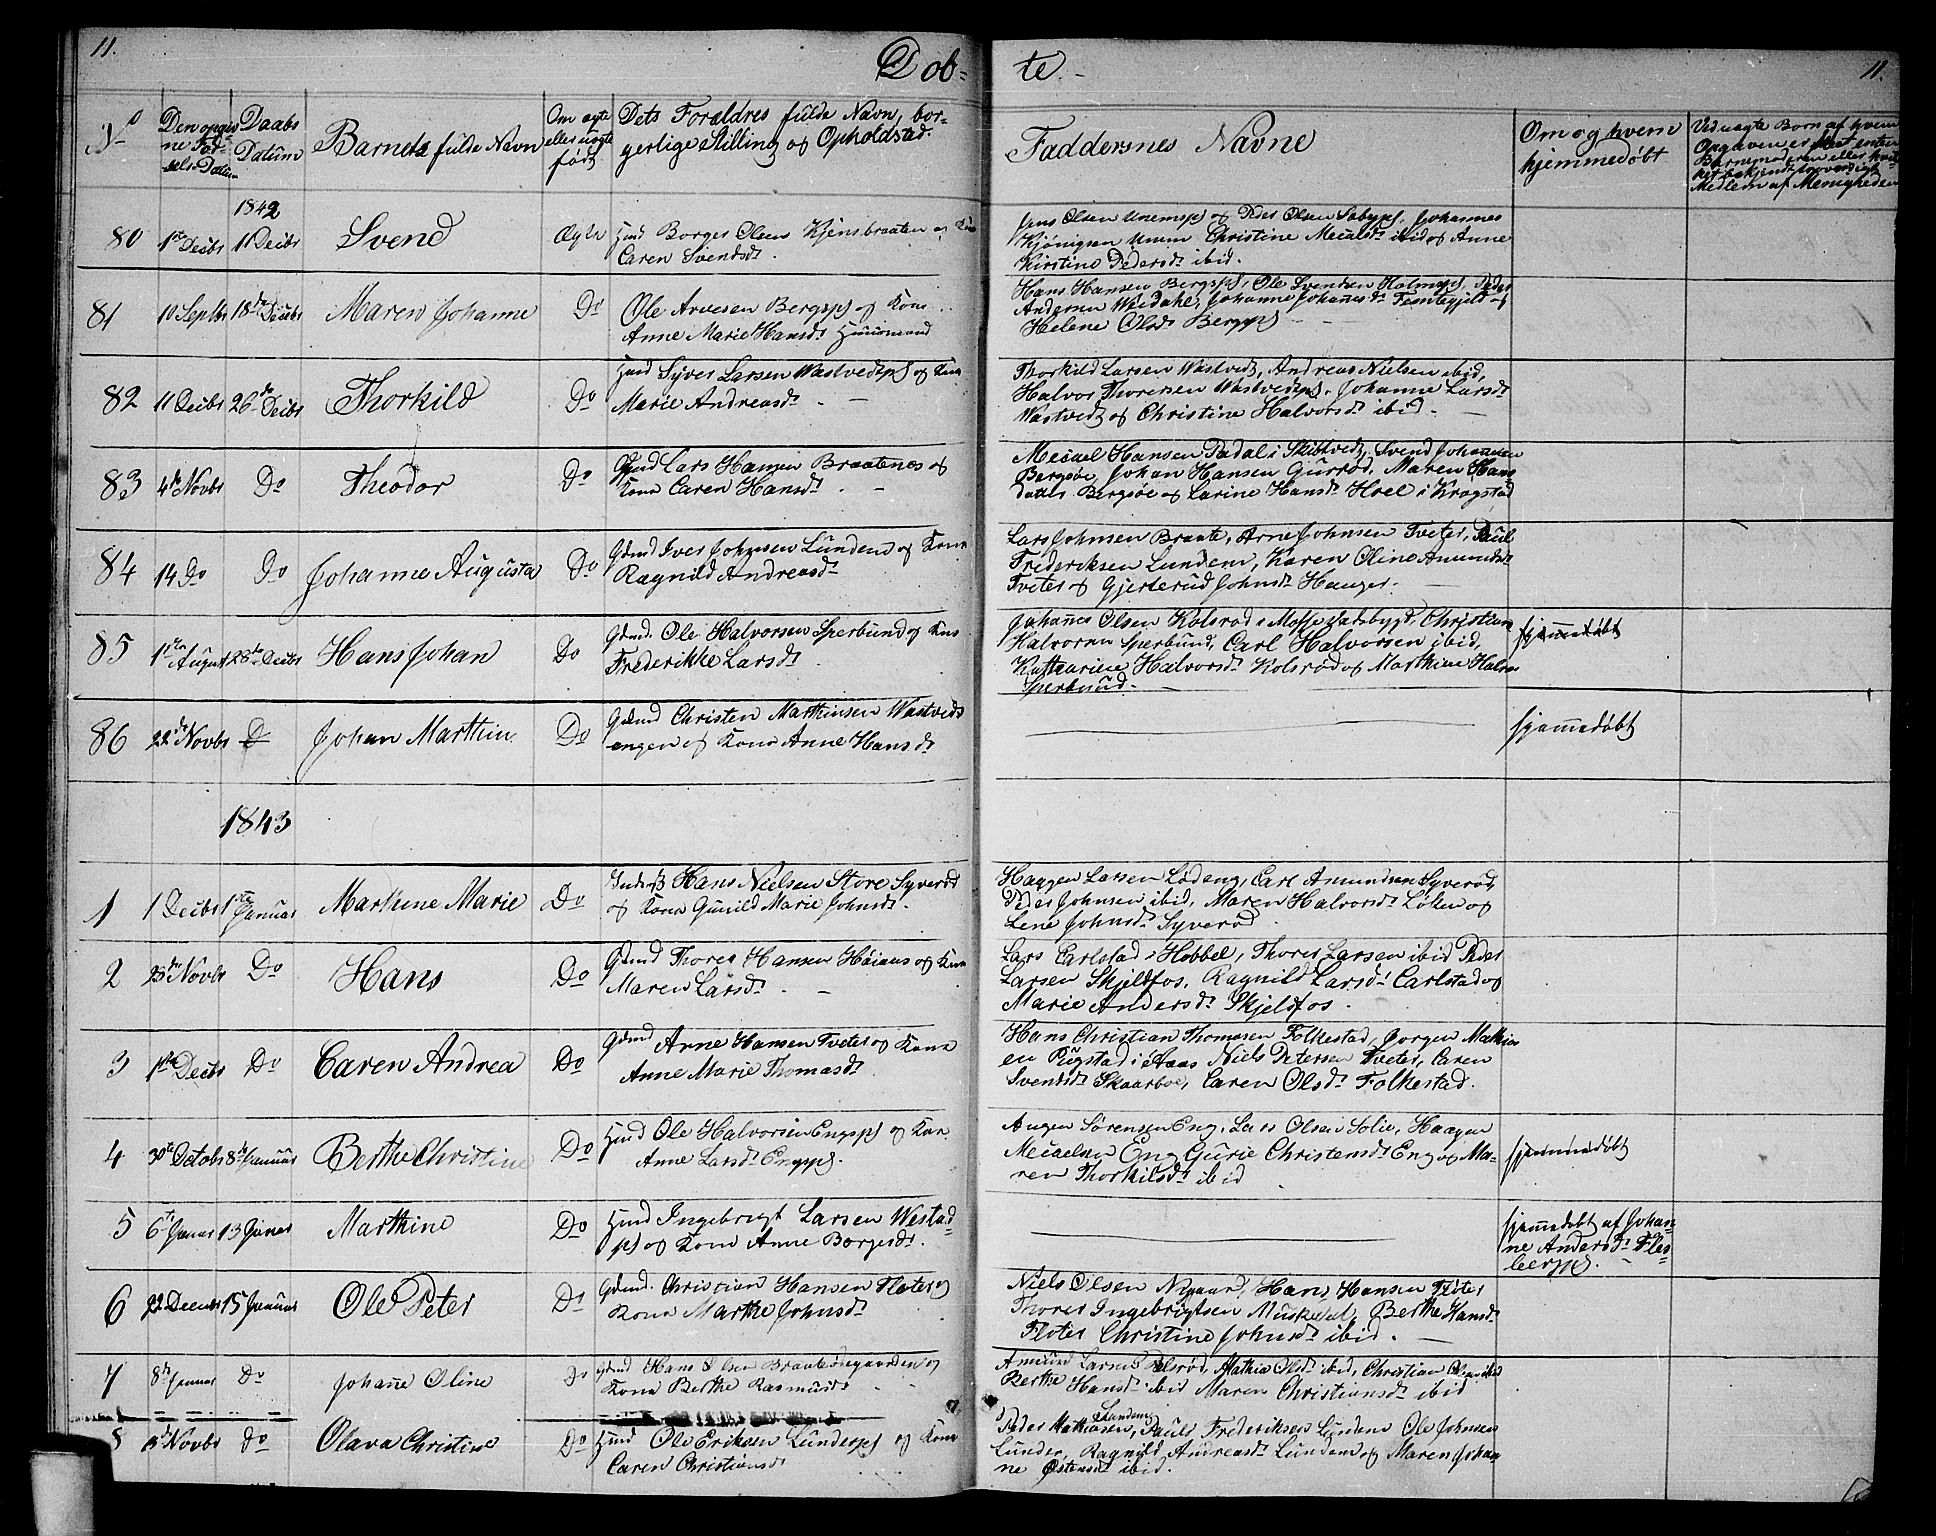 11.
Døb-
te.-
11.
No
Den opgiv
ne Fød-
sels-Datum
Daabs
Datum
Barnets fulde Navn
Om ægte
eller uægte
født
Dets Forældres fulde Navn, bor-
gerlige Stilling og Opholdstad.
Faddernes Navne
Om og hvem
hjemmedøbt
Ved uægte Børn af hvem
Opgaven er skeet enten
Barnemoderen eller
Medlem af Menigheden
1842
80
1ste Decbr
11 Decbr
Svend
Ægte
Huusmd Borger Olsen Kjensbraaten og Kone
Caren Svendsdr.
Jens Olsen Unemspl og Peder Olsen Sabypl, Johannes
Kjønigsen Unem Christine Mecalsdr ibid og Anne
Kirstine Pedersdr ibid.
81
10 Septbr
18de Decbr
Maren Johanne
Do
Ole Arvesen Bergspl og Kone
Anne Marie Hansdr Huusmand
Hans Hansen Bergspl, Ole Svendsen Holmspl, Peder
Andersen Weidahl, Johanne Johanesdr
Helene Olsdr Bergpl
82
11 Decbr
26de Decbr
Thorkild
Do
Hmd Syver Larsen Wastvedtpl og Kone
Marie Andreasdr. -
Thorkild Larsen Wastvedt, Andreas Nielsen ibid,
Halvor Thoresen Wastvedtpl. Johanne Larsdr
Wastvedt og Christine Halvorsdr ibid. -
83
4de Novbr
Do
Theodor
Do
Gdmd Lars Hansen Braatenes og
Kone Caren Hansdr. -
Mecael Hansen Dadal i Skibtvedt, Svend Johannesen
Bergsøe, Johan Hansen Gurrød, Maren Hans
datter Bergsøe og Larine Hansdr Hoel i Kragstad
84
14 Do
Do
Johanne Augusta
Do
Gdmd Iver Johnsen Lundene og Kone
Ragnild Andreasdr
Lars Johnsen Braate, Arne Johnsen Tveter, Paul
Frederiksen Lundem, Karen Oline Amundsdr
Tveter og Gjerterud Johnsdr Hauger.
85
1ste August
28de Decbr
Hans Johan
Do
Gdmd. Ole Halvorsen Sperbund og Kone
Frederikke Larsdr
Johanes Olsen Kolsrod i Mosse Landsbygd, Christian
Halvorsen Sperbund, Carl Halvorsen ibid,
Kattearine Halvorsdr Kolsrød og Marthine Halvors
Sperbund. -
hjemmedøbt
86
22de Novbr
D
Johan Marthin
Do
Gdmd Christen Marthinsen Wastvedt
engen og Kone Anne Hansdr
hjemmedøbt
1843
1
1 Decbr
1ste Januar
Marthine Marie
Do
Hans Nielsen Store Syverød
og Kone Gunild Marie Johnsdr.
Haagen Larsen Lødeng, Carl Amundsen Syverød,
Peder Johnsen ibid, Maren Halvorsdr Løken og
Lene Johnsdr Syverød
2
23de Novbr
Do
Hans
Do
Gdmd Thorer Hansen Høiaas og Kone
Maren Larsdr. -
Lars Carlstad i Hobbel, Thorer Larsen ibid Peder
Larsen Skjeldfos, Ragnild Larsdr Carlstad og
Marie Andersdr Skjeldfos.
3
1ste Decbr
Do
Caren Andrea
Do
Gdmd Arne Hansen Tveter og Kone
Anne Marie Thomasdr.
Hans Christian Thomasen Folkestad, Jørgen Mathies
en Rugstad i Aaas Niels Petersen Tveter, Caren
Svensdr Skaarboe, Caren Olsdr Folkestad.
4
30te Octobr
8de Januar
Berthe Christine
Do
Hmd Ole Halvorsen Engspl og Kone
Anne Larsdr Engpl.
Augen Sørensen Eng, Lars Olsen Solie, Haagen
Mecaelsen Eng Gurie Christensdr Eng og Ma-
ren Thorkilsdr ibid
hjemmedøbt
5
6te Januar
13 Januar
Marthine
Do
Hmd Ingebrigt Larsen Westad-
pl og Kone Anne Borgersdr.
hjemmedøbt af Johan-
ne Andersdr Fles-
bergpl. -
6
22 Decembr
15 Januar
Ole Peter
Do
Gdmd. Christian Hansen Fløter og
Kone Marthe Johnsdr
Niels Olsen Nygaard, Hans Hansen Fløter
Thorer Ingebrigtsen Muskeval, Berthe Hansdr
Fløter Christine Johnsdr ibid. -
7
8de Januar
Do
Johane Oline
Do
Gdmd Hans Olsen Braateødegaarden og
Kone Berthe Rasmusdr
Amund Larsen Pelsrød, Mathia Olsdr ibid, Christian Olsen ibid
Berthe Hansdr ibid Maren Christiansdr ibid
8
Novbr
Do
Olava Christine
Do
Hmd Ole Eriksen Lunderpl og Kone
Caren Christiansdr
Peder Mathiasen, Pauls Frederiksen Lundene Ole Johnsen
Lunder, Ragnild Andreasdr Lundem og Maren Johan
ne Ostensdr ibid.